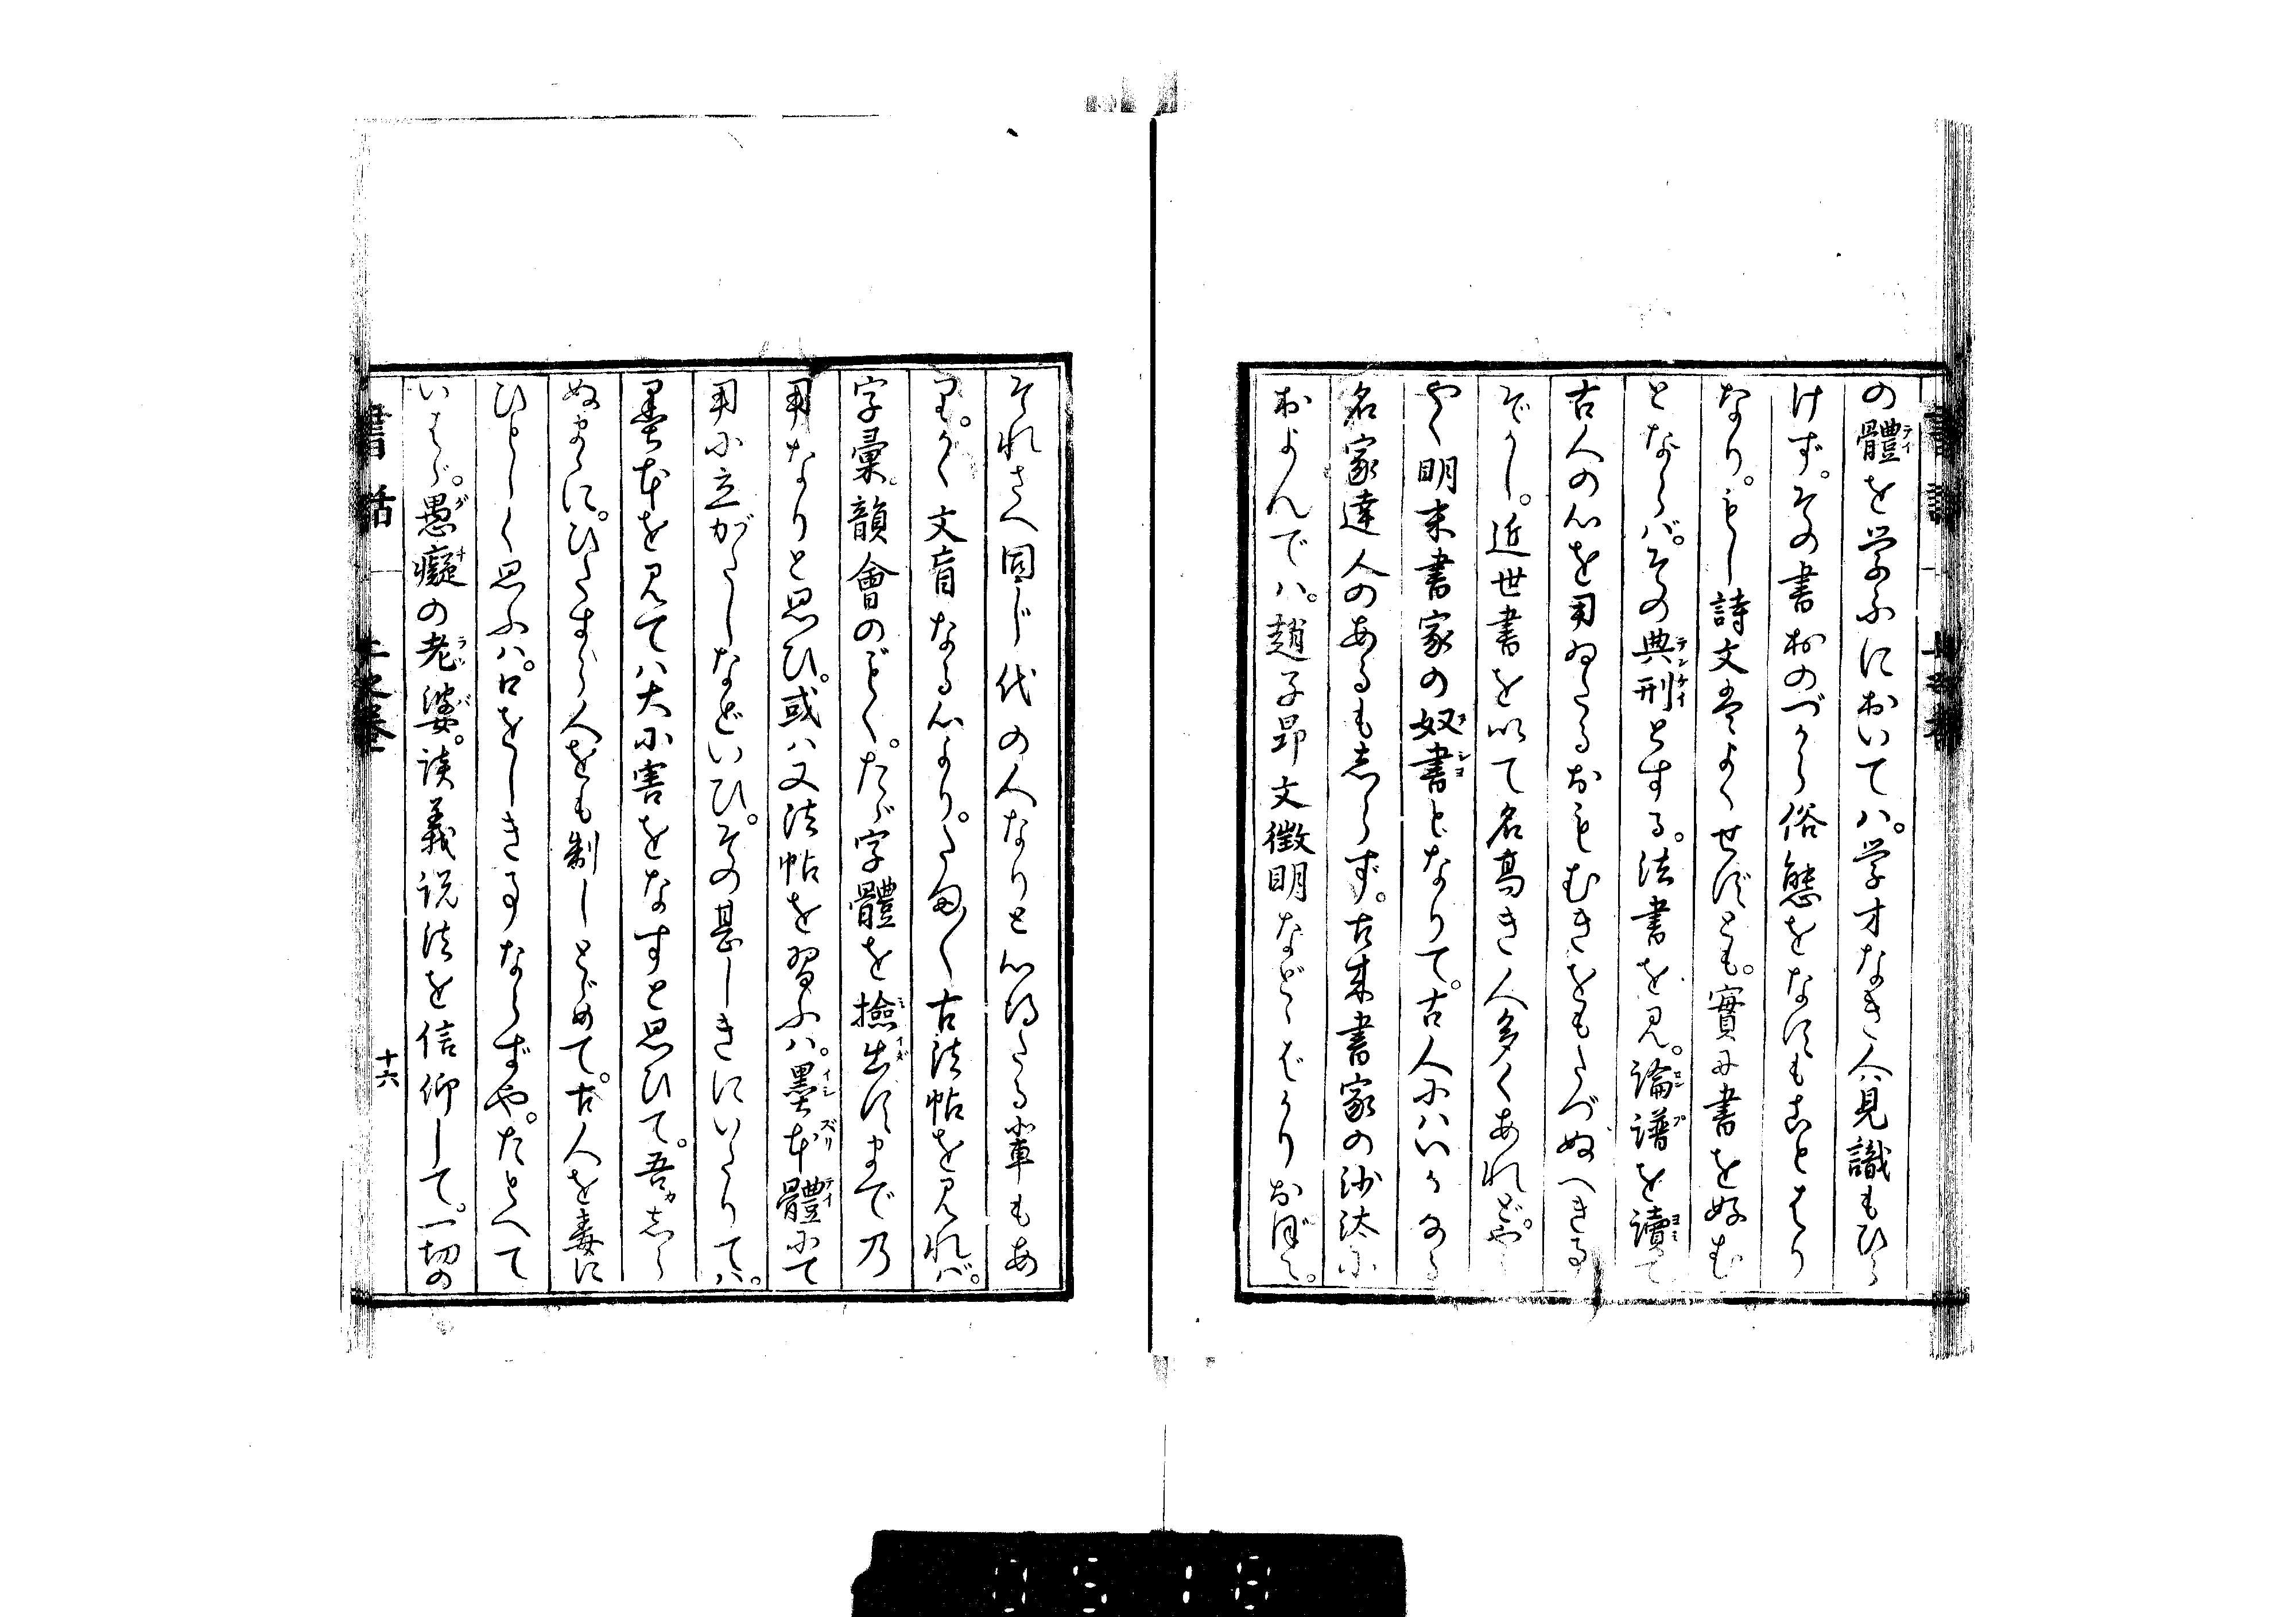 の體を学ふにおいてハ。学才なき人ハ見識もひら
けず。その書おのづから俗態をなすもことはり
なり。もし詩文をよくせずとも。實に書を好む
とならバ。その典刑とする。法書を見。論譜を讀て
古人の心を用ゐたるおもむきをもたづぬへき事
ぞかし。近世書を以て名高き人多くあれどや
やく明末書家の奴書となりて。古人にハいかなる
名家達人のあるも志らず。古来書家の沙汰に
およんでハ。趙子昂文徴明などばかりおぼえ。
それさへ同じ代の人なりと心得たる輩もあ
り。かく文盲なる心より。たま〱古法帖を見れバ。
字彙。韻會のごとく。たゞ字體を撿出すまで乃
用なりと思ひ。或ハ又法帖を習ふハ。墨本體にて
用に立がたしなどいひ。その甚しきにいたりてハ。
墨本を見てハ大に害をなすと思ひて。吾志ら
ぬまゝに。ひたすら人をも制しとゞめて。古人を毒に
ひとしく思ふハ。口をしき事ならずや。たとへて
いはゞ。愚癡の老婆。談義説法を信仰して。一切の
書話
上之巻
十六